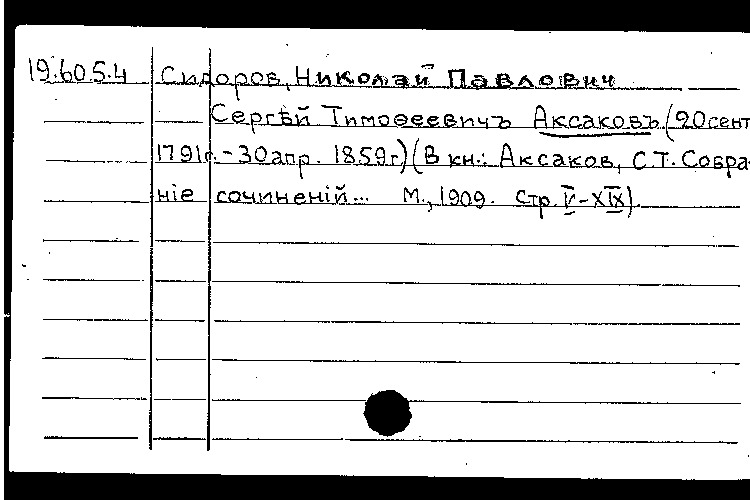 19.60.5.4 Сидоров, Николай Павлович
Сергѣй Тимоѳеевичъ Аксаковъ. (20 сент
1791г. - 30 апр. 1859г) (В кн.: Аксаков, С.Т. Собра-
ніе сочиненій... М., 1909. Стр. V-XIX).